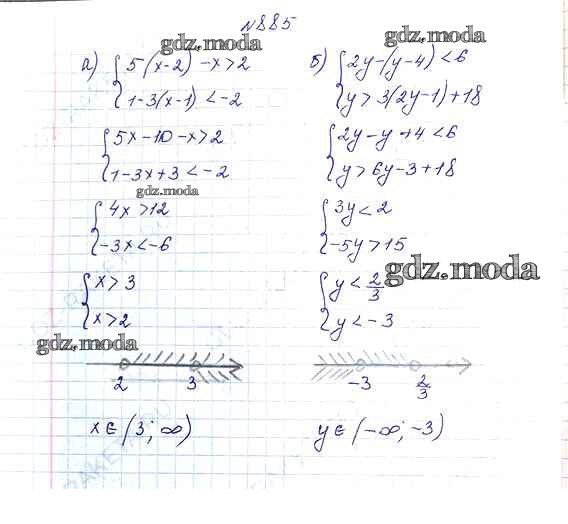 №885
gdz.moda
а) { 5(x-2) -x>2
1-3(x-1) <-2
{ 5x-10-x>2
1-3x+3<-2
gdz.moda
{ 4x>12
-3x<-6
{ x>3
x>2
gdz.moda
2 3
x∈(3; ∞)
gdz.moda
б) { 2y-(y-4) <6
y>3(2y-1)+18
{ 2y-y+4<6
y>6y-3+18
{ 3y<2
-5y>15
gdz.moda
{ y<2/3
y<-3
-3 2/3
y∈(-∞; -3)